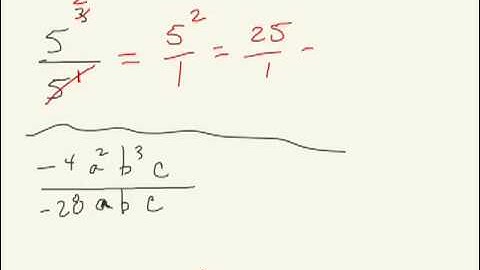 5^{\cancel{3} 2} / \cancel{5^1} = 5^2 / 1 = 25 / 1 =
-4 a^2 b^3 c
-28 a b c